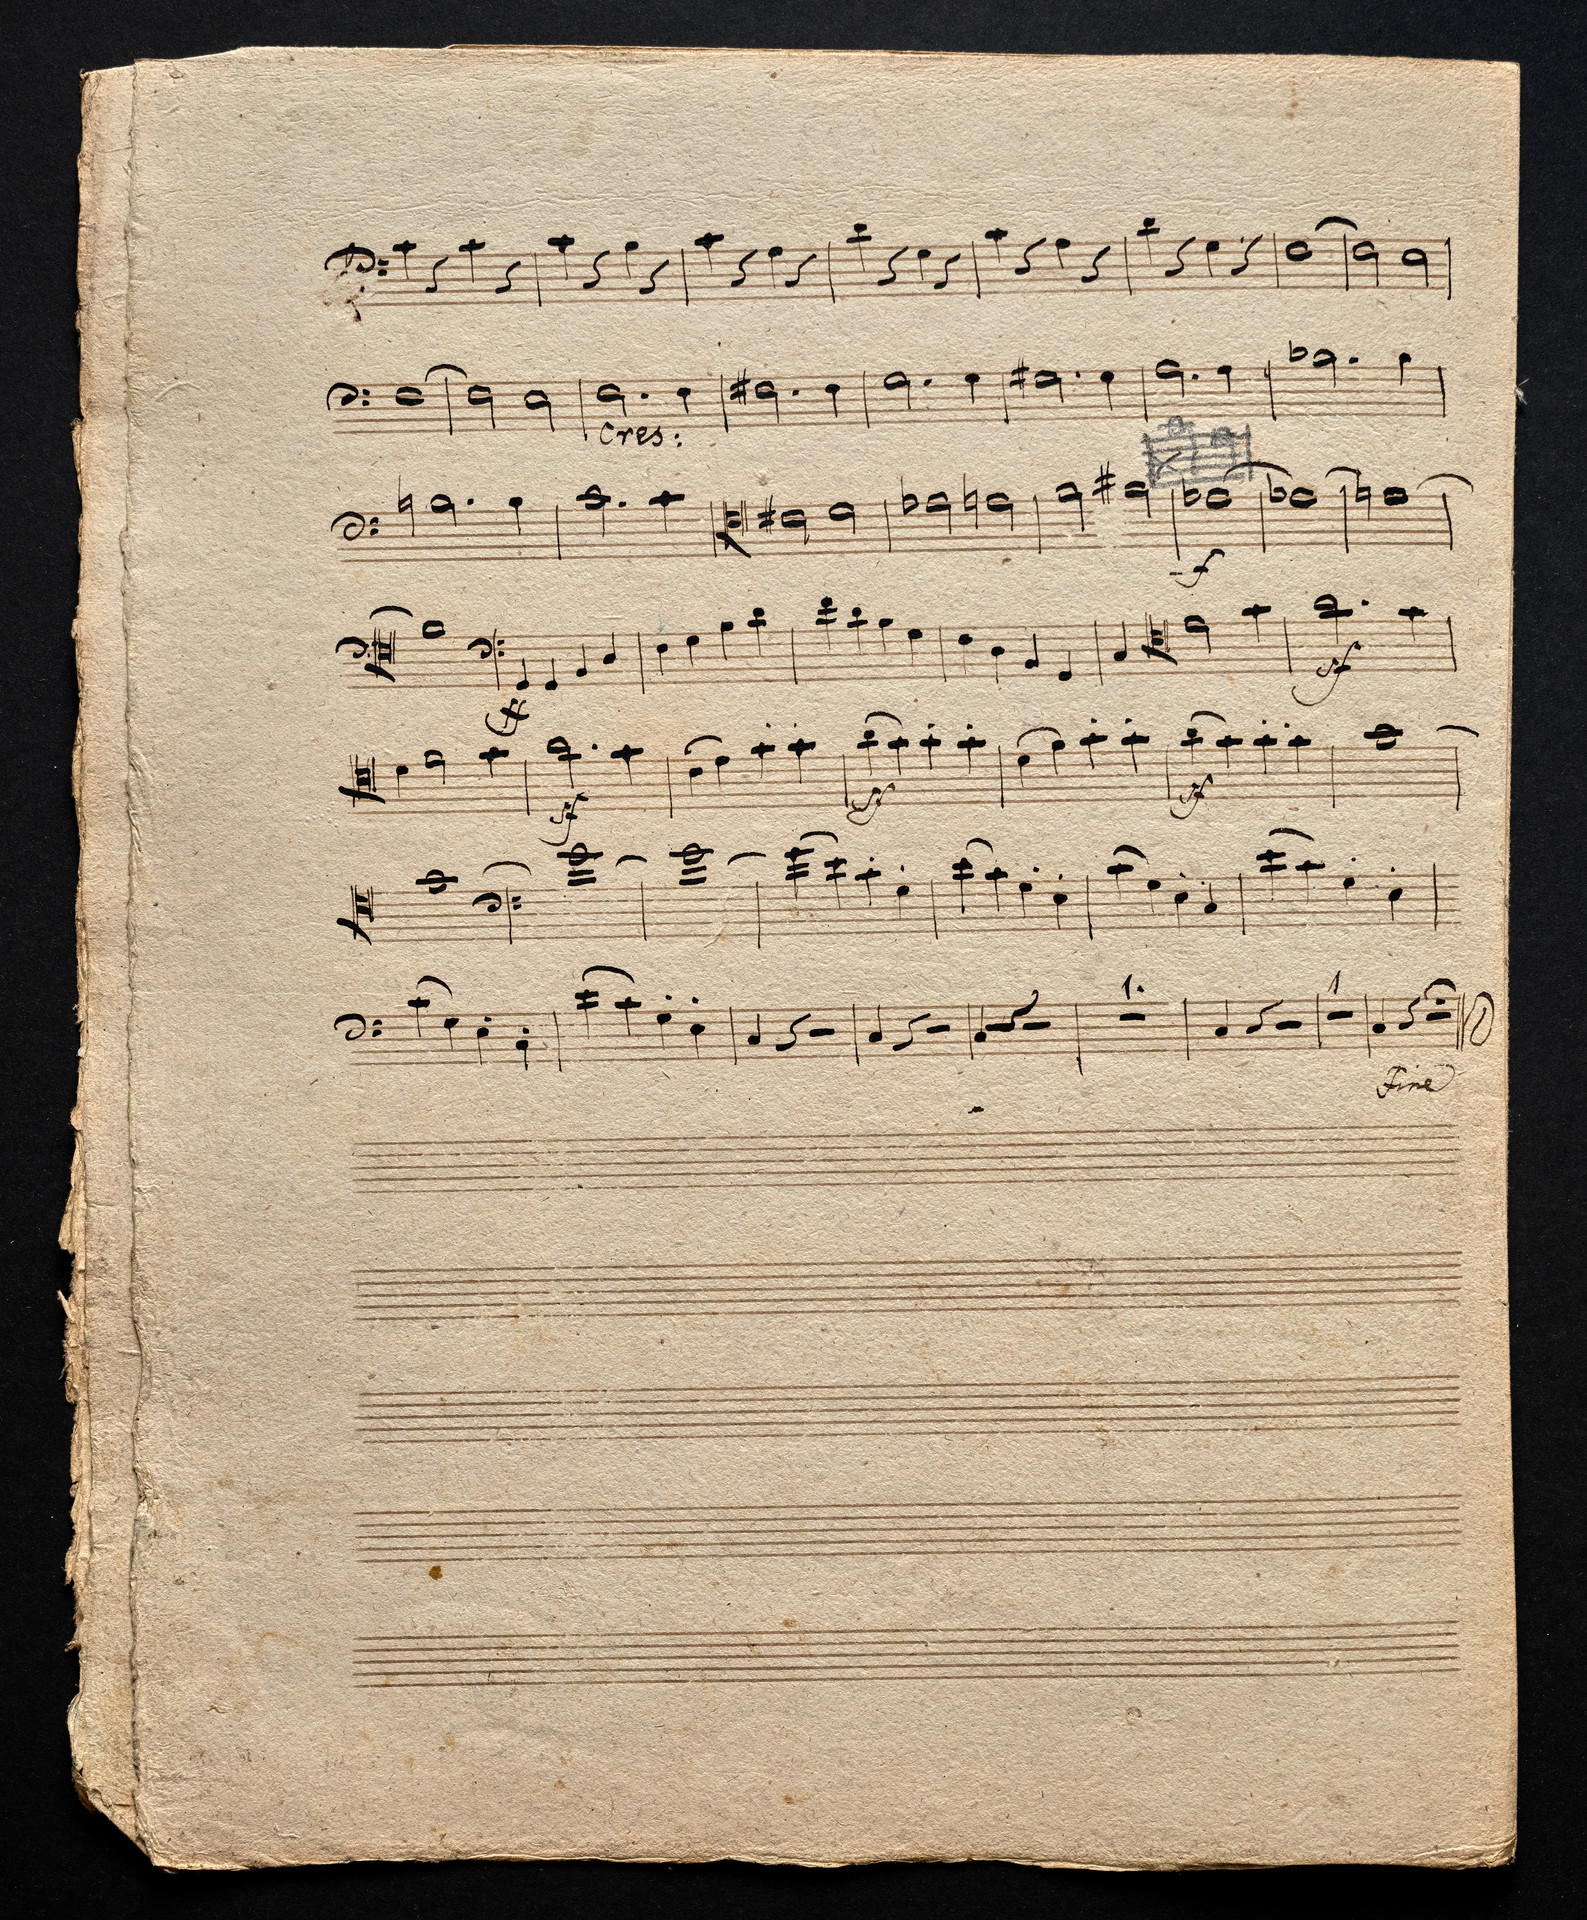 Cres:
f
sf
sf sf sf
1. 1
Fine